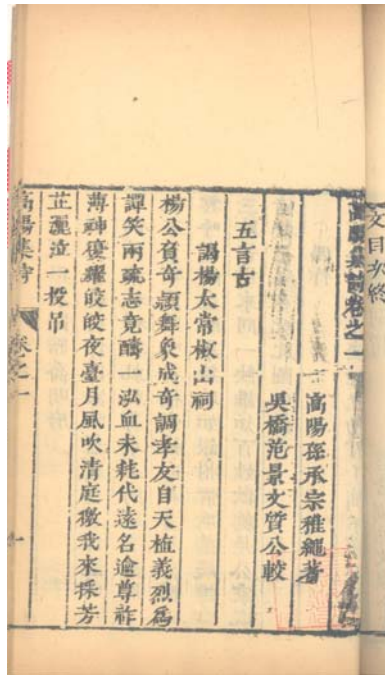 文目次終
高陽集詩卷之一
高陽孫承宗稚繩著
吳橋范景文質公較
五言古
謁楊太常椒山祠
楊公負奇韻舞象成奇調孝友自天植義烈為
譚笑兩疏志竟酬一泓血未耗代遠名逾尊祚
薄神彌耀皎皎夜臺月風吹清庭徼我來採芳
芷灑泣一投弔
高陽集詩
卷之一
一